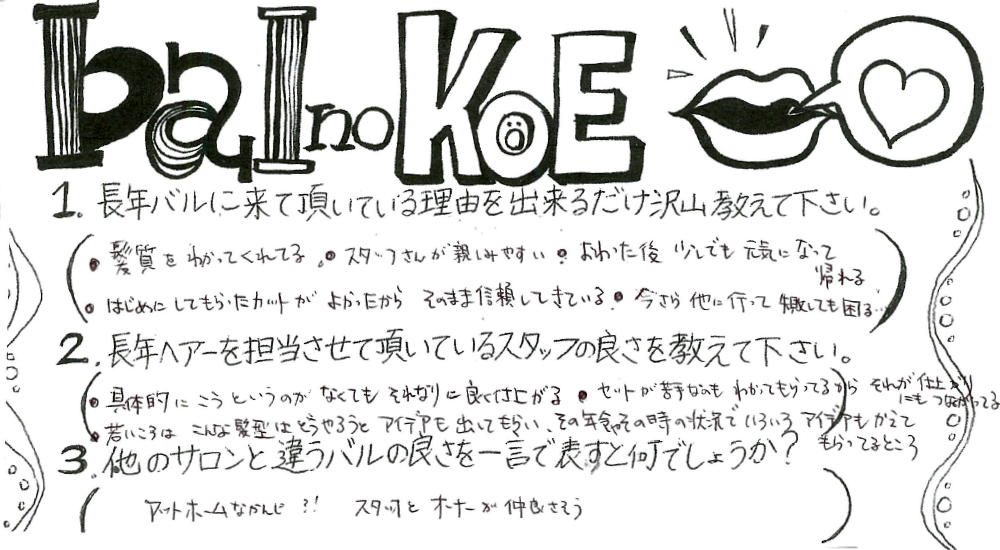 bal no KOE
1. 長年バルに来て頂いている理由を出来るだけ沢山教えて下さい。
• 髪質をわかってくれてる。• スタッフさんが親しみやすい • おわった後 少しでも元気になって
帰れる
• はじめにしてもらったカットがよかったから そのまま信頼してきている • 今さら他に行って失敗しても困る…
2. 長年ヘアーを担当させて頂いているスタッフの良さを教えて下さい。
• 具体的にこうというのがなくてもそれなりに良く仕上がる • セットが苦手なのもわかってもらってるから それが仕上がり
にもつながってる
• 若いころは こんな髪型はどうやろうと アイデアも出してもらい、その年令その時の状況でいろいろアイデアもかえて
もらってるところ
3. 他のサロンと違うバルの良さを一言で表すと何でしょうか?
アットホームなかんじ ?! スタッフとオーナーが仲良さそう